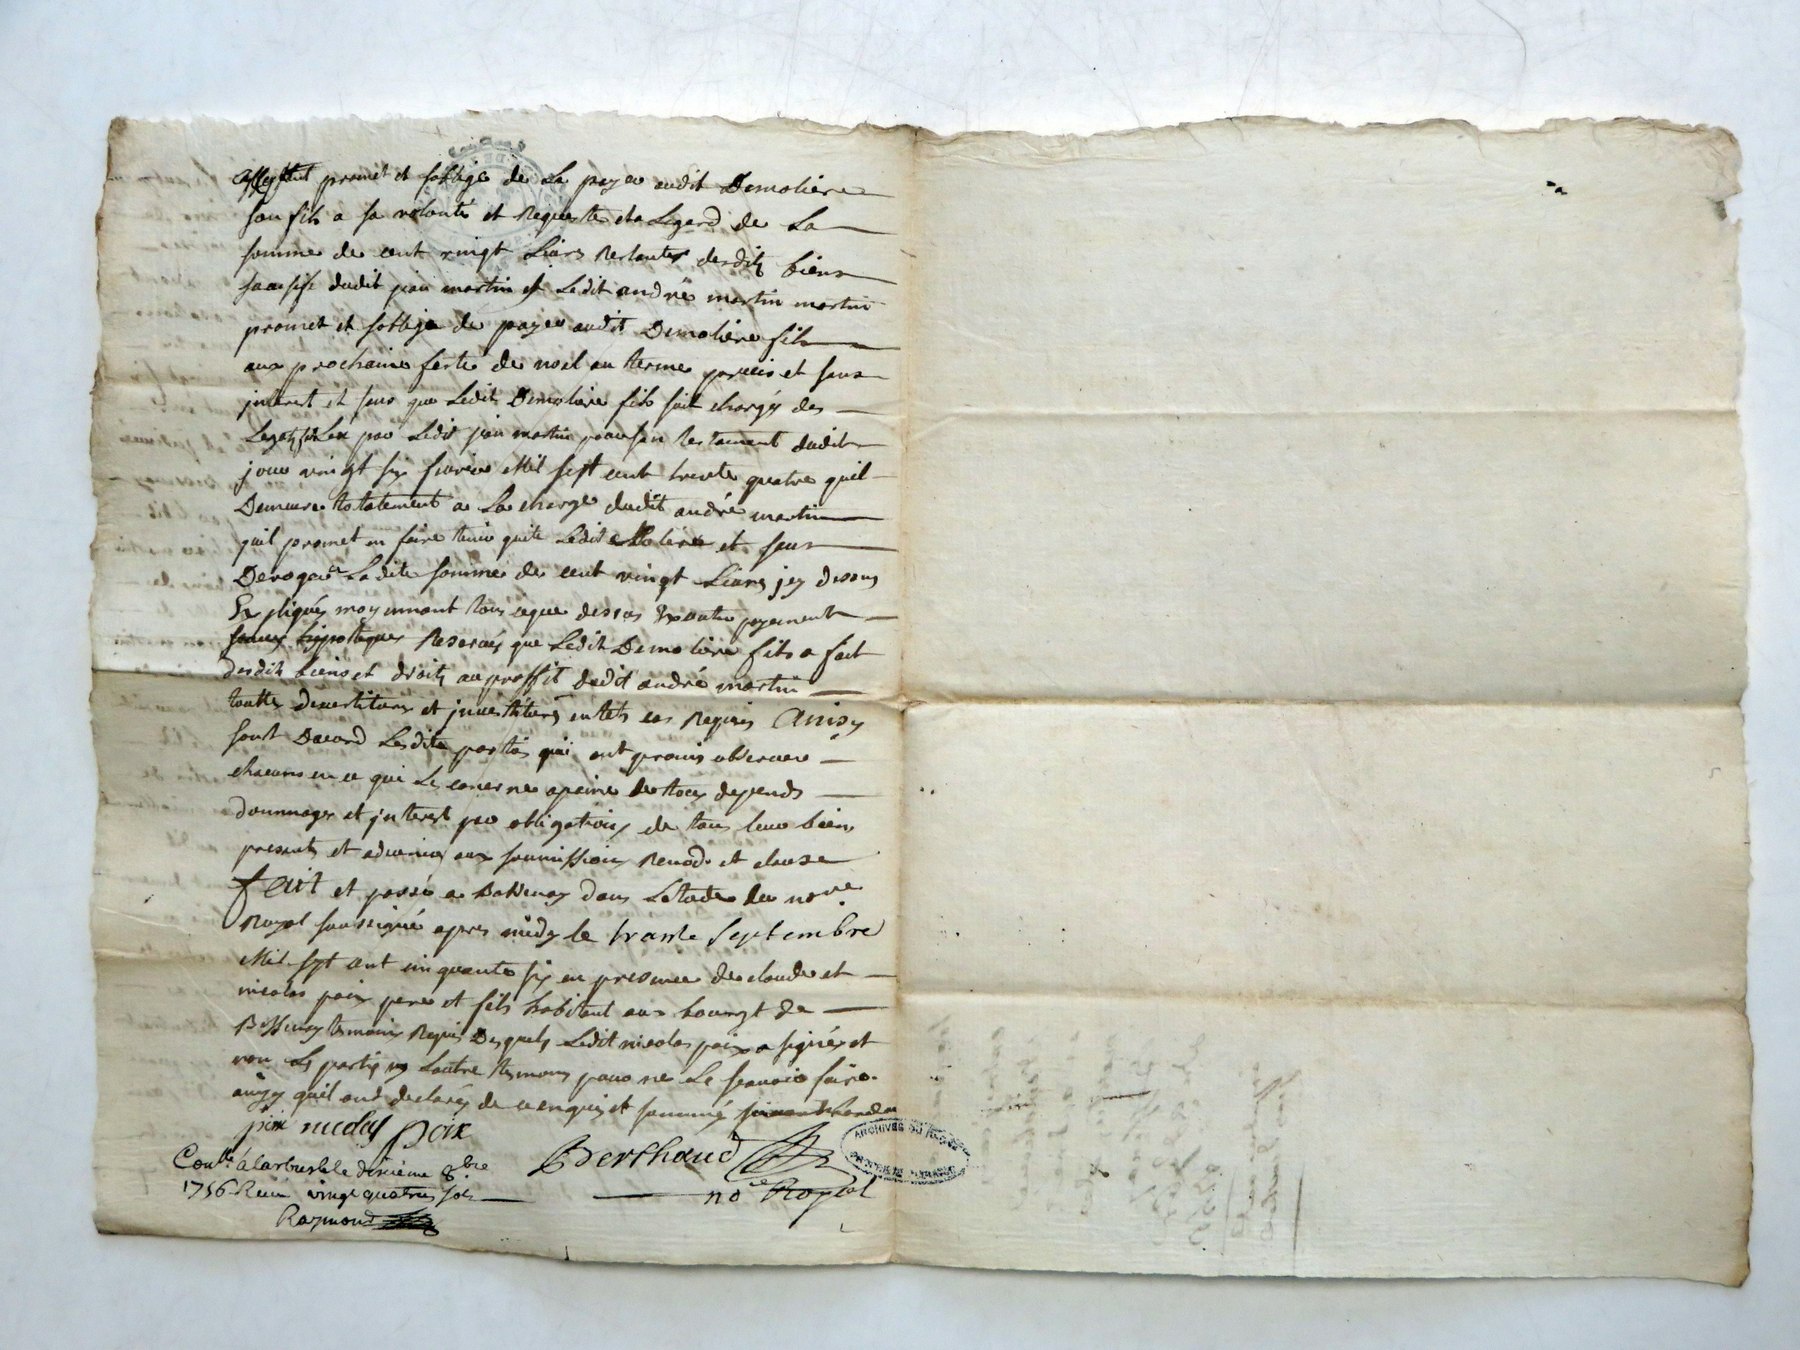 promet et soblige de La payer audit Demoliere
son fils a sa volonté et Requeste et a Legard de La
somme de cent vingt Livres Restantes desdits biens
dudit jean martin Ledit andré martin martin
promet et soblige de payer audit Demoliere fils
aux prochaine feste de noel au terme precis et sans
jnterest et sans que Ledit Demoliere fils soit chargés des
Legats par Ledit jean martin pour son testament dudit
jour vingt six fevrier Mil sept cent trente quatre quil
Demeure totalement a La charge dudit andré martin
quil promet en faire tenir quitte Ledit Moliere et sans
Deroger a Ladite somme de cent vingt Livres jcy dessus
Expliqués moyennant tous ceque dessus payement
hypoteques Reservés que Ledit Demoliere fils a fait
desdits biens et droits au proffit dudit andré martin
touttes devestitures et jnvestitures en tels cas Requis Ainsy
sont Dacord Lesdites parties qui ont promis observer
chacuns en ce qui Les concerne a peine de tous depends
dommages et jnterest par obligations de tous leur biens
presents et advenir aux soumissions Renods et clause
fait et passé a dans Letude du nore
Royal soussigné apres midy le trante septembre
Mil sept cent cinquante six en presence de claude et
nicolas paix pere et fils habitant au bourgt de
temoins Requis Desquels Ledit nicolas paix a signés et
non Les parties ny Lautre temoins pour ne Le scavoir faire
ainsy quil ont declarés de ce enquis et sommé
nicolas paix
Berthaud
no.re Royal
Conlle à Larbresle le dixieme 8bre
1756 Reçu vingt quatres sols
Raymond
ARCHIVES DU RHÔNE